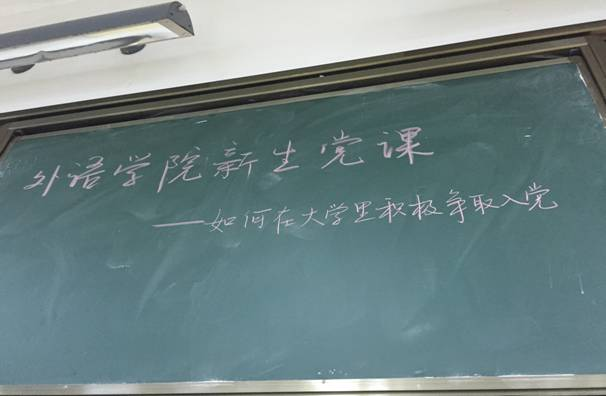 外语学院新生党课
——如何在大学里积极争取入党